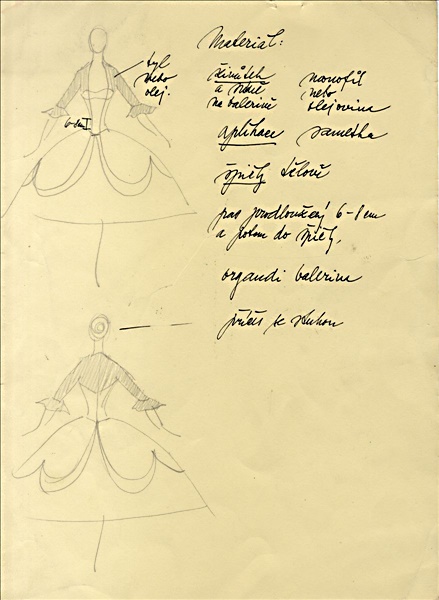 Materiál:
tyl
nebo
olej.
živůtek
a sukně
na balerině
monofil
nebo
olejovina
aplikace sametka
špičky tělově
pas prodloužený 6-8 cm
a potom do špičky.
organdi balerina
příčes se stuhou